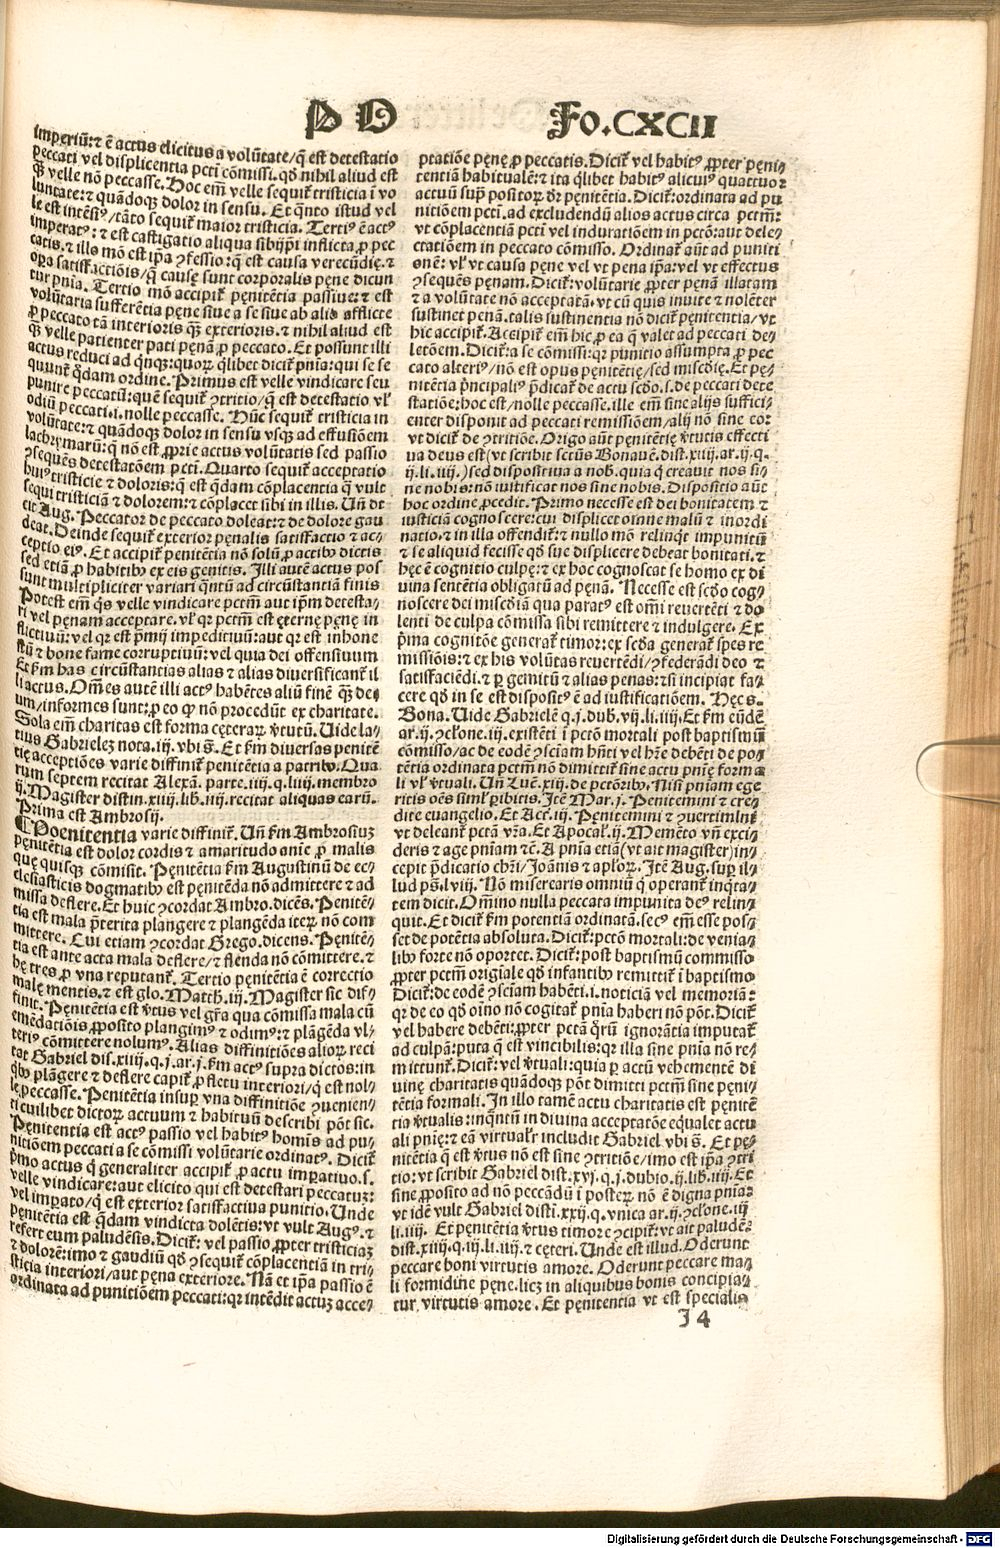 P O
Fo.CXCII
imperiū: ⁊ ē actus elicitus a volūtate/q̄ est detestatio
peccati vel displicentia pcti cōmissi. qd nihil aliud est
q̄ȝ velle nō peccasse. Hoc em̄ velle sequit̄ tristicia ī vo
luntate: ⁊ quādoqȝ dolor in sensu. Et q̄nto istud vel
le est intēsiꝰ/tāto sequit̄ maior tristicia. Tertiꝰ ē actꝰ
imperatꝰ: ⁊ est castigatio aliqua sibiip̄i inflicta ꝓ pec
catis. ⁊ illo mō est ip̄a ꝯfessio: q̄ est causa verecūdię. ⁊
opa satisfactiōis/q̄ causę sunt corporalis pene dicun
tur pn̄ia. Tertio mō accipit̄ penitētia passiue: ⁊ est
volūtaria sufferētia pęne siue a se siue ab alio afflicte
ꝓ peccato tā interioris qȝ exterioris. ⁊ nihil aliud est
qȝ velle patienter pati penā ꝓ peccato. Et possunt illi
actus reduci ad q̄nqȝ: quoꝝ q̄libet dicit̄ pn̄ia: qui se se
quunt̄ q̄dam ordine. Primus est velle vindicare seu
punire peccatū: quē sequit̄ ꝯtritio/q̄ est detestatio vl̄
odiū peccati .i. nolle peccasse. Hūc sequit̄ tristicia in
volūtate: ⁊ quādoqȝ dolor in sensu vsqȝ ad effusiōem
lachrymarū: q̄ nō est ꝓprie actus volūtatis sed passio
ꝯsequēs detestatōem pcti. Quarto sequit̄ acceptatio
huiꝰ tristicie ⁊ doloris: q̄ est q̄dam cōplacentia q̄ vult
sequi tristiciā ⁊ dolorem: ⁊ cōplacet sibi in illis. Un̄ di
cit Aug. Peccator de peccato doleat: ⁊ de dolore gau
deat. Deinde sequit̄ exterior pęnalis satisfactio ⁊ ac⸗
ceptio eiꝰ. Et accipit̄ penitētia nō solū ꝓ actibꝰ dictis
sed etiā ꝓ habitibꝰ ex eis genitis. Illi autē actus pos
sunt multipliciter variari q̄ntū ad circūstantiā finis
Potest em̄ q̄s velle vindicare pctm̄ aut ip̄m detesta⸗
ri vel pęnam acceptare. vl̄ qꝛ pctm̄ est ęternę pęnę in
flictiuū: vel qꝛ est p̄mij impeditiuū: aut qꝛ est inhone
stū ⁊ bone fame corruptiuū: vel quia dei offensiuum
Et km̄ has circūstantias alias ⁊ alias diuersificant̄ il
li actus. Om̄es autē illi actꝰ habētes aliū finē qȝ de⸗
um/informes sunt: ꝓ eo ꝙ nō procedūt ex charitate.
Sola em̄ charitas est forma cęteraꝝ v̄tutū. Uide la⸗
tius Gabrielez nota. iij. vbi s̄. Et km̄ diuersas penitē
tię acceptiōes varie diffinit̄ penitētia a patribꝰ. Qua
rum septem recitat Alexā. parte. iiij. q. liiij. membro
ij. Magister distin. xiiij. lib. iiij. recitat aliquas earū.
Prima est Ambrosij.
¶Poenitentia varie diffinit̄. Un̄ km̄ Ambrosiuȝ
pęnitētia est dolor cordis ⁊ amaritudo anię ꝓ malis
quę quisqȝ cōmisit. Pęnitētia km̄ Augustinū de ec⸗
clesiasticis dogmatibꝰ est penitēda nō admittere ⁊ ad
missa deflere. Et huic ꝯcordat Ambro. dicēs. Penitē⸗
tia est mala p̄terita plangere ⁊ plangēda iteꝝ nō com
mittere. Cui etiam ꝯcordat Grego. dicens. Penitē⸗
tia est ante acta mala deflere/⁊ flenda nō cōmittere. ⁊
hę tres ꝓ vna reputant̄. Tertio pęnitētia ē correctio
malę mentis. ⁊ est glo. Matth. iij. Magister sic dif⸗
finit. Penitētia est v̄tus vel gr̄a qua cōmissa mala cū
emēdatiōis ꝓposito plangimꝰ ⁊ odimꝰ: ⁊ plāgēda vl⸗
teriꝰ cōmittere nolumꝰ. Alias diffinitiōes alioꝝ reci
tat Gabriel dis. xiiij. q. j. ar. j. km̄ actꝰ supra dictos: in
qbꝰ plāgere ⁊ deflere capit̄ ꝓ fletu interiori/q̄ est nol⸗
le peccasse. Penitētia insuꝑ vna diffinitiōe ꝯuenien⸗
ti cuilibet dictoꝝ actuum ⁊ habituū describi pōt sic.
Pęnitentia est actꝰ passio vel habitꝰ homīs ad pu⸗
nitiōem peccati a se cōmissi volūtarie ordinatꝰ. Dicit̄
p̄mo actus q̄ generaliter accipit̄ ꝓ actu imꝑatiuo .s.
velle vindicare: aut elicito qui est detestari peccatuȝ:
vel imꝑato/q̄ est exterior satisfactiua punitio. Unde
pęnitētia est q̄dam vindicta dolētis: vt vult Augꝰ. ⁊
refert eum paludēsis. Dicit̄: vel passio ꝓpter tristiciaȝ
⁊ dolorē: imo ⁊ gaudiū qd ꝯsequit̄ cōplacentiā in tri⸗
sticia interiori/aut pęna exteriore. Nā et ip̄a passio ē
ordinata ad punitiōem peccati: qꝛ intēdit actuȝ acce⸗
ptatiōe pęnę ꝓ peccatis. Dicit̄ vel habitꝰ ꝓpter pęni⸗
tentiā habitualē: ⁊ ita q̄libet habitꝰ alicuiꝰ quattuor
actuū supꝰpositoꝝ dr̄ pęnitētia. Dicit̄: ordinata ad pu
nitiōem pcti. ad excludendū alios actus circa pctm̄:
vt cōplacentiā pcti vel induratiōem in pctō: aut dele⸗
ctatiōem in peccato cōmisso. Ordinat̄ aūt ad puniti
onē: vl̄ vt causa pęne vel vt pena ip̄a: vel vt effectus
ꝯsequēs pęnam. Dicit̄: volūtarie ꝓpter pęnā illatam
⁊ a volūtate nō acceptatā. vt cū quis inuite ⁊ nolēter
sustinet penā. talis sustinentia nō dicit̄ pęnitentia/vt
hic accipit̄. Accipit̄ em̄ hic ꝓ ea q̄ valet ad peccati de⸗
letōem. Dicit̄: a se cōmissi: qꝛ punitio assumpta ꝓ pec
cato alteriꝰ/nō est opus penitētię/sed mis​cd̄ię. Et pę⸗
nitētia p̄ncipaliꝰ p̄dicat̄ de actu scd̄o .s. de peccati dete
statiōe: hoc est/nolle peccasse. ille em̄ sine alijs suffici⸗
enter disponit ad peccati remissiōem/alij nō sine eo:
vt dicit̄ de ꝯtritiōe. Origo aūt pęnitētię v̄tutis effecti
ua deus est (vt scribit sctūs Bonauē. dist. xiiij. ar. ij. q.
ij. li. iiij.) sed dispositiua a nob̄. quia q̄ creauit nos si⸗
ne nobis: nō iustificat nos sine nobis. Dispositio aūt
hoc ordine ꝓcedit. Primo necesse est dei bonitatem ⁊
iusticiā cognoscere: cui displicet omne malū ⁊ inordi
natio. ⁊ in illa offendit̄: ⁊ nullo mō relinq̄t impunitū
⁊ se aliquid fecisse qd̄ sue displicere debeat bonitati. ⁊
hęc ē cognitio culpę: ⁊ ex hoc cognoscat se homo ex di
uina sentētia obligatū ad pęnā. Necesse est scd̄o cog⸗
noscere dei misc̄diā qua paratꝰ est om̄i reuertēti ⁊ do
lenti de culpa cōmissa sibi remittere ⁊ indulgere. Ex
p̄ma cognitōe generat̄ timor: ex scd̄a generat̄ spes re
missiōis: ⁊ ex his volūtas reuertēdi/ꝯfederādi deo ⁊
satisfaciēdi. ⁊ ꝑ gemitū ⁊ alias penas: ⁊ si incipiat fa⸗
cere qd̄ in se est dispositꝰ ē ad iustificatiōem. Hęc s.
Bona. Uide Gabrielē q. j. dub. vij. li. iiij. Et km̄ eūdē
ar. ij. ꝯcłone. iij. existēti ī pctō mortali post baptismū
cōmisso/ac de eodē ꝯsciam hn̄ti vel hr̄e debēti de po⸗
tētia ordinata pctm̄ nō dimittit̄ sine actu pn̄ię forma
li vl̄ v̄tuali. Un̄ Luē. xiij. de pctōribꝰ. Nisi pniam ege
ritis oēs siml̄ ꝑibitis. Itē Mar. j. Penitemini ⁊ cre⸗
dite euangelio. Et Act. iij. Pęnitemini ⁊ ꝯuertimini
vt deleant̄ pctā vr̄a. Et Apocal̄. ij. Memēto vn̄ exci⸗
deris ⁊ age pniam ⁊c. A pnia etiā (vt ait magister) in⸗
cepit p̄dicatio chr̄i/Joānis ⁊ apłoꝝ. Itē Aug. suꝑ il⸗
lud ps̄. lviij. Nō miserearis omniū q̄ operant̄ inqta⸗
tem dicit. Om̄ino nulla peccata impunita deꝰ relin⸗
quit. Et dicit̄ km̄ potentiā ordinatā. secꝰ em̄ esse pos⸗
set de potētia absoluta. Dicit̄: pctō mortali: de venia⸗
libꝰ forte nō oportet. Dicit̄: post baptismū commisso
ꝓpter pctm̄ origīale qd̄ infantibꝰ remittit̄ ī baptismo
Dicit̄: de eodē ꝯsciam habēti .i. noticiā vel memoriā:
qꝛ de eo qd̄ oīno nō cogitat̄ pnia haberi nō pōt. Dicit̄
vel habere debēti: ꝓpter pctā q̄rū ignorātia imputat̄
ad culpā: puta q̄ est vincibilis: qꝛ illa sine pnia nō re⸗
mittunt̄. Dicit̄: vel v̄tuali: quia ꝑ actū vehementē di
uinę charitatis quādoqȝ pōt dimitti pctm̄ sine pęni⸗
tētia formali. In illo tamē actu charitatis est pęnitē
tia v̄tualis: inq̄ntū in diuina acceptatōe equalet actu
ali pnię: ⁊ eā virtualr̄ includit Gabriel vbi s̄. Et pę⸗
nitētia q̄ est v̄tus nō est sine ꝯtritiōe/imo est ip̄a ꝯtri
tio: vt scribit Gabriel dist. xvj. q. j. dubio. ij. lib. iiij. Et
sine ꝓposito ad nō peccādū ī posteꝝ nō ē digna pnia:
vt idē vult Gabriel disti. xxij. q. vnica ar. ij. ꝯcłone. iij
li. iiij. Et pęnitētia v̄tus timore ꝯcipit̄: vt ait paludē⸗
dist. xiiij. q. iij. li. iiij. ⁊ cęteri. Unde est illud. Oderunt
peccare boni virtutis amore. Oderunt peccare ma⸗
li formidine pęne. licȝ in aliquibus bonis concipia⸗
tur virtutis amore. Et pęnitentia vt est specialis
J 4
Digitalisierung gefördert durch die Deutsche Forschungsgemeinschaft - DFG